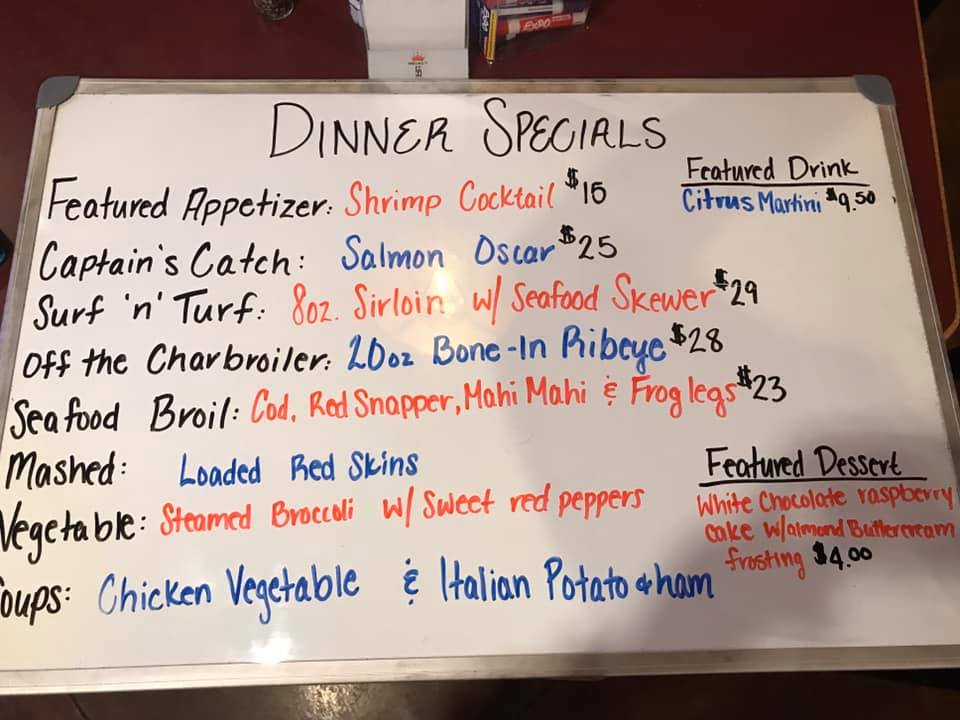 EXPO
DINNER SPECIALS
Featured Appetizer: Shrimp Cocktail $15
Featured Drink
Citrus Martini $9.50
Captain's Catch: Salmon Oscar $25
Surf 'n' Turf: 8oz. Sirloin w/ Seafood Skewer $29
Off the Charbroiler: 20oz Bone-In Ribeye $28
Seafood Broil: Cod, Red Snapper, Mahi Mahi & Frog legs $23
Mashed: Loaded Red Skins
Vegetable: Steamed Broccoli w/ Sweet red peppers
oups: Chicken Vegetable & Italian Potato & ham
Featured Dessert
White Chocolate raspberry
cake w/almond Buttercream
frosting $4.00